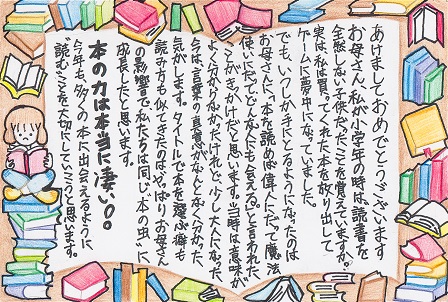 あけましておめでとうございます
お母さん、私が小学年の時は、読書を
全然しない子供だったことを覚えていますか。
実は、私は買ってくれた本を放り出して
ゲームに夢中になっていました。
でも、いつしか手にとるようになったのは
お母さんに、"本を読めば偉人にだって魔法
使いにだって、どんな人にも会える。"と言われた
ことがきっかけだと思います。当時は意味が
よく分からなかったけれど、少し大人になった
今は、言葉の真意がなんとなく分かった
気がします。タイトルで本を選ぶ癖も
読み方も似てきたのは、やっぱりお母さん
の影響で、私たちは同じ"本の虫"に
成長したと思います。
本の力は本当に凄い。
今年も、多くの本に出会えるように
"読む"ことを大切にしていこうと思います。